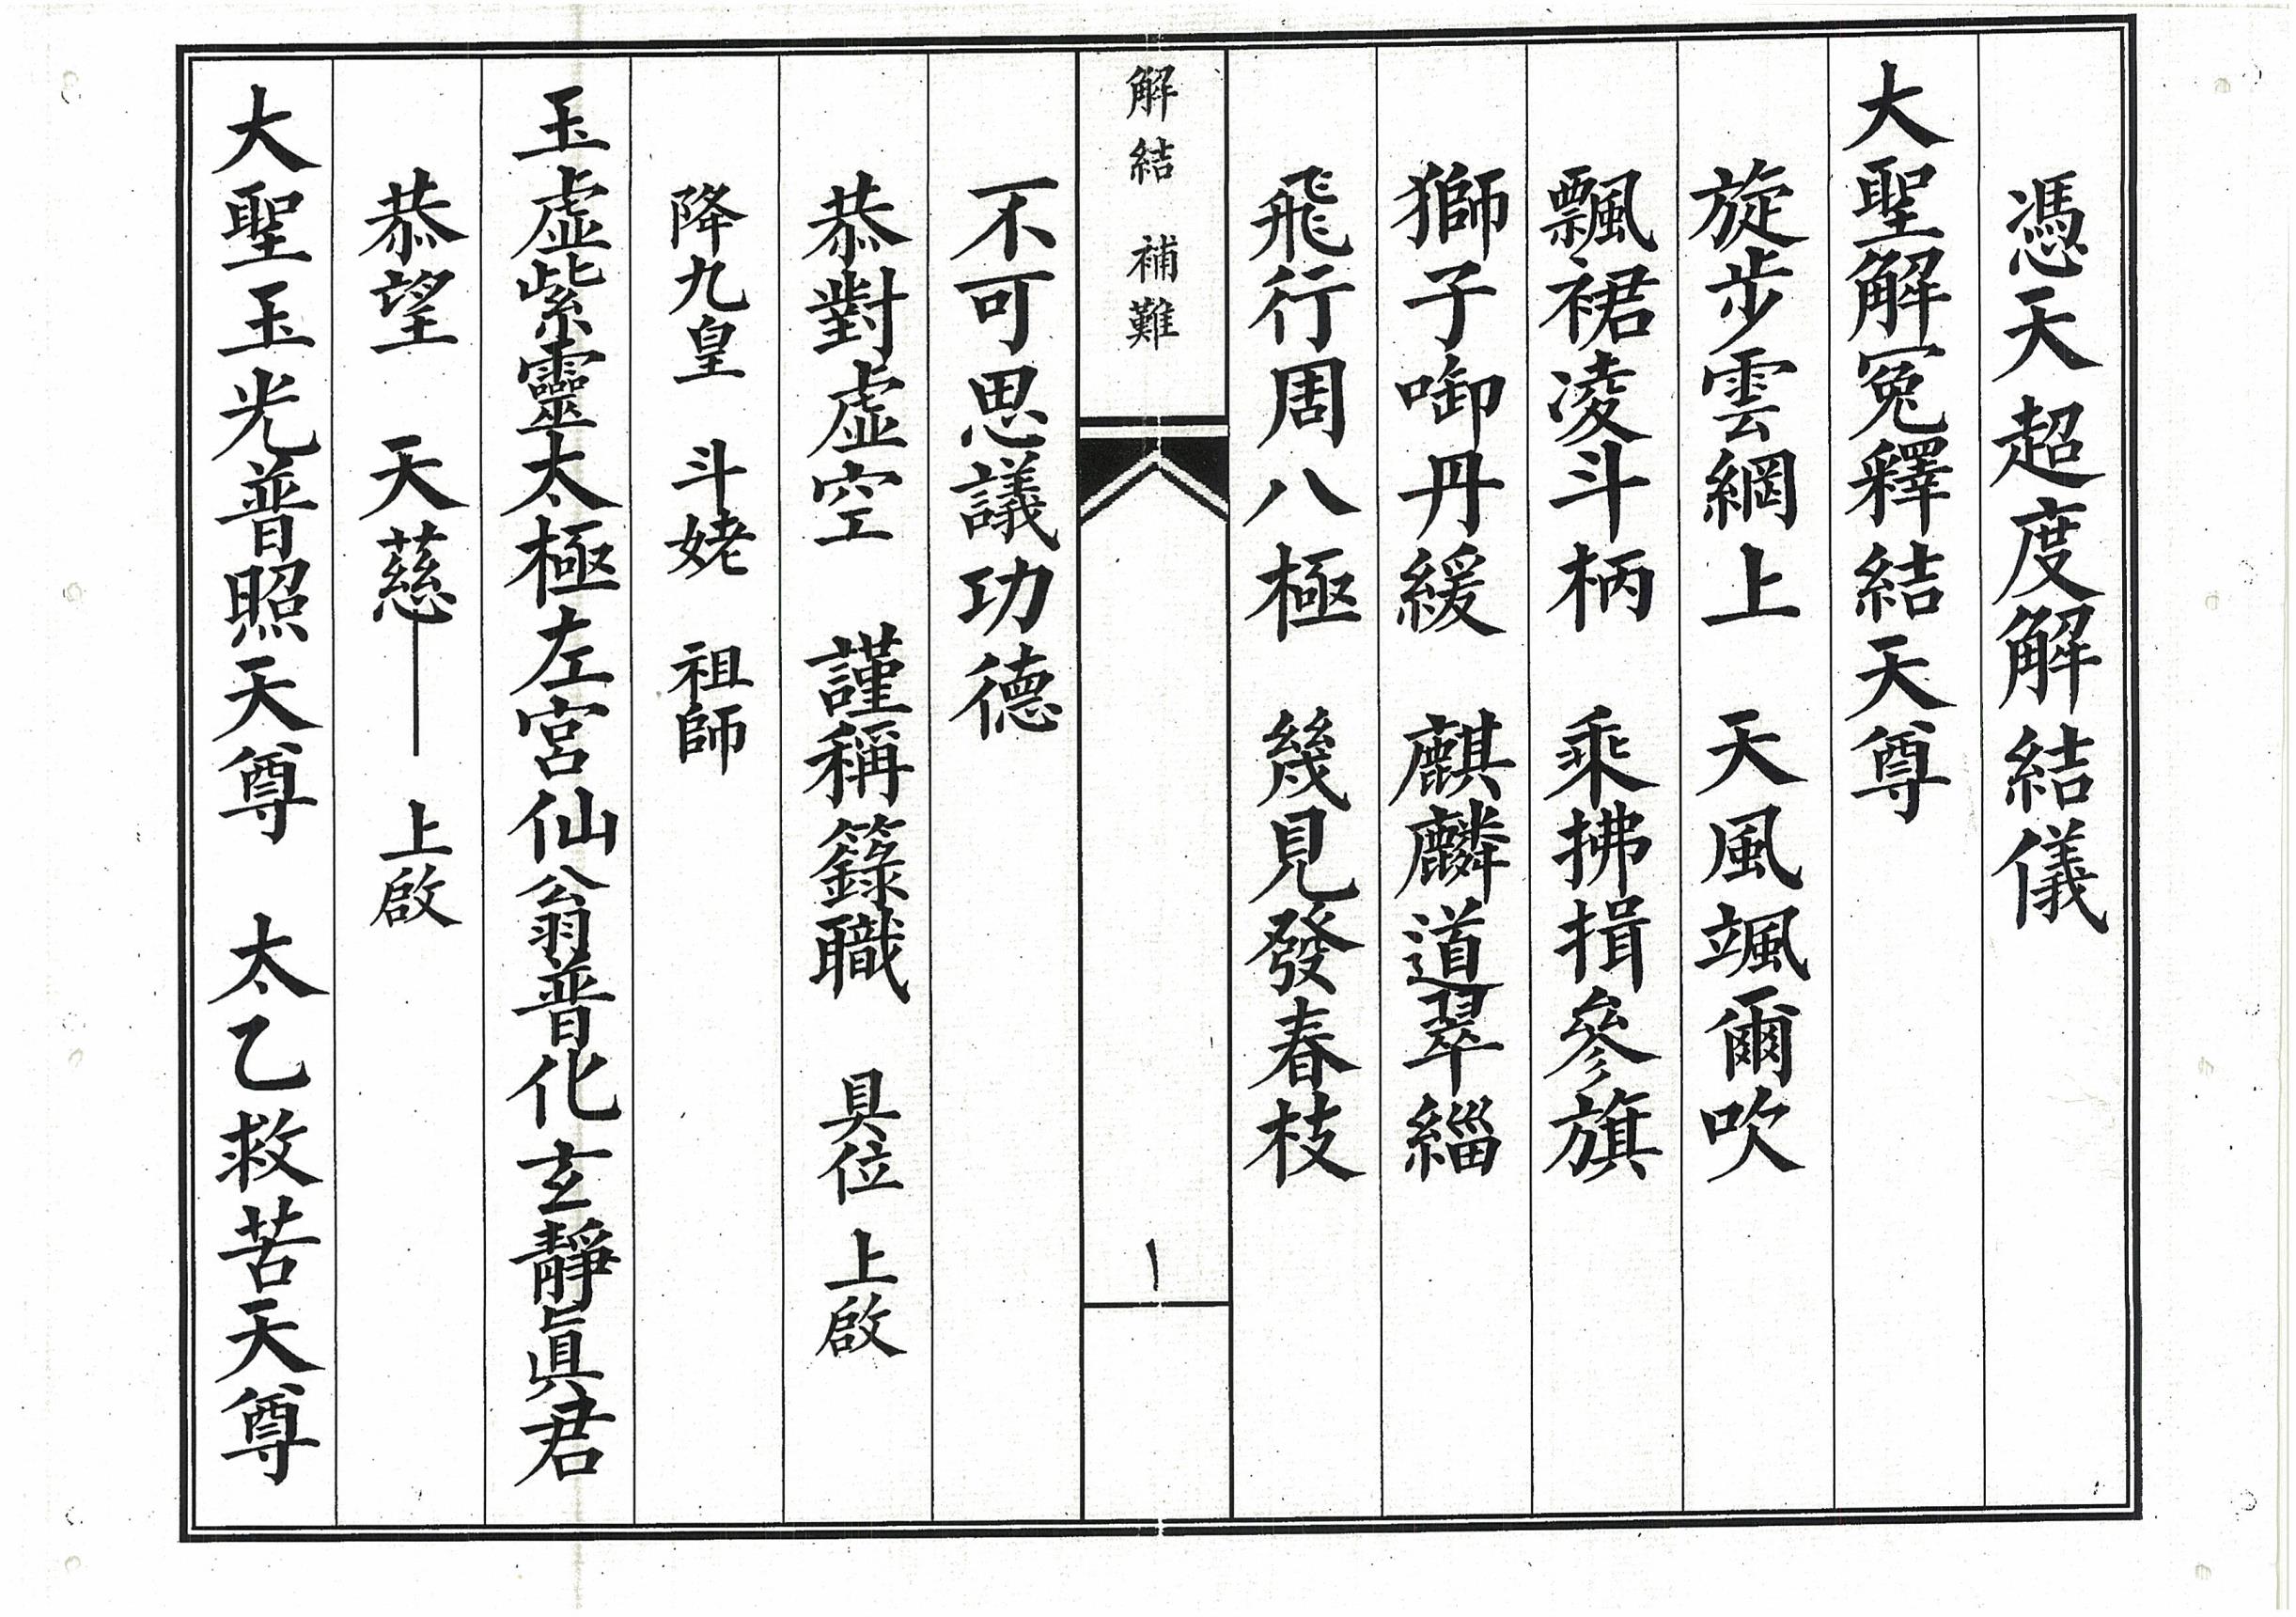 憑天超度解結儀
大聖解冤釋結天尊
旋步雲綱上　天風颯爾吹
飄裙凌斗柄　乘拂揖參旗
獅子啣丹綬　麒麟道翠緇
飛行周八極　幾見發春枝
解結　補難
一
不可思議功德
恭對虛空　謹稱籙職　具位　上啟
降九皇　斗姥　祖師
玉虛紫靈太極左宮仙翁普化玄靜眞君
恭望　天慈——上啟
大聖玉光普照天尊　太乙救苦天尊